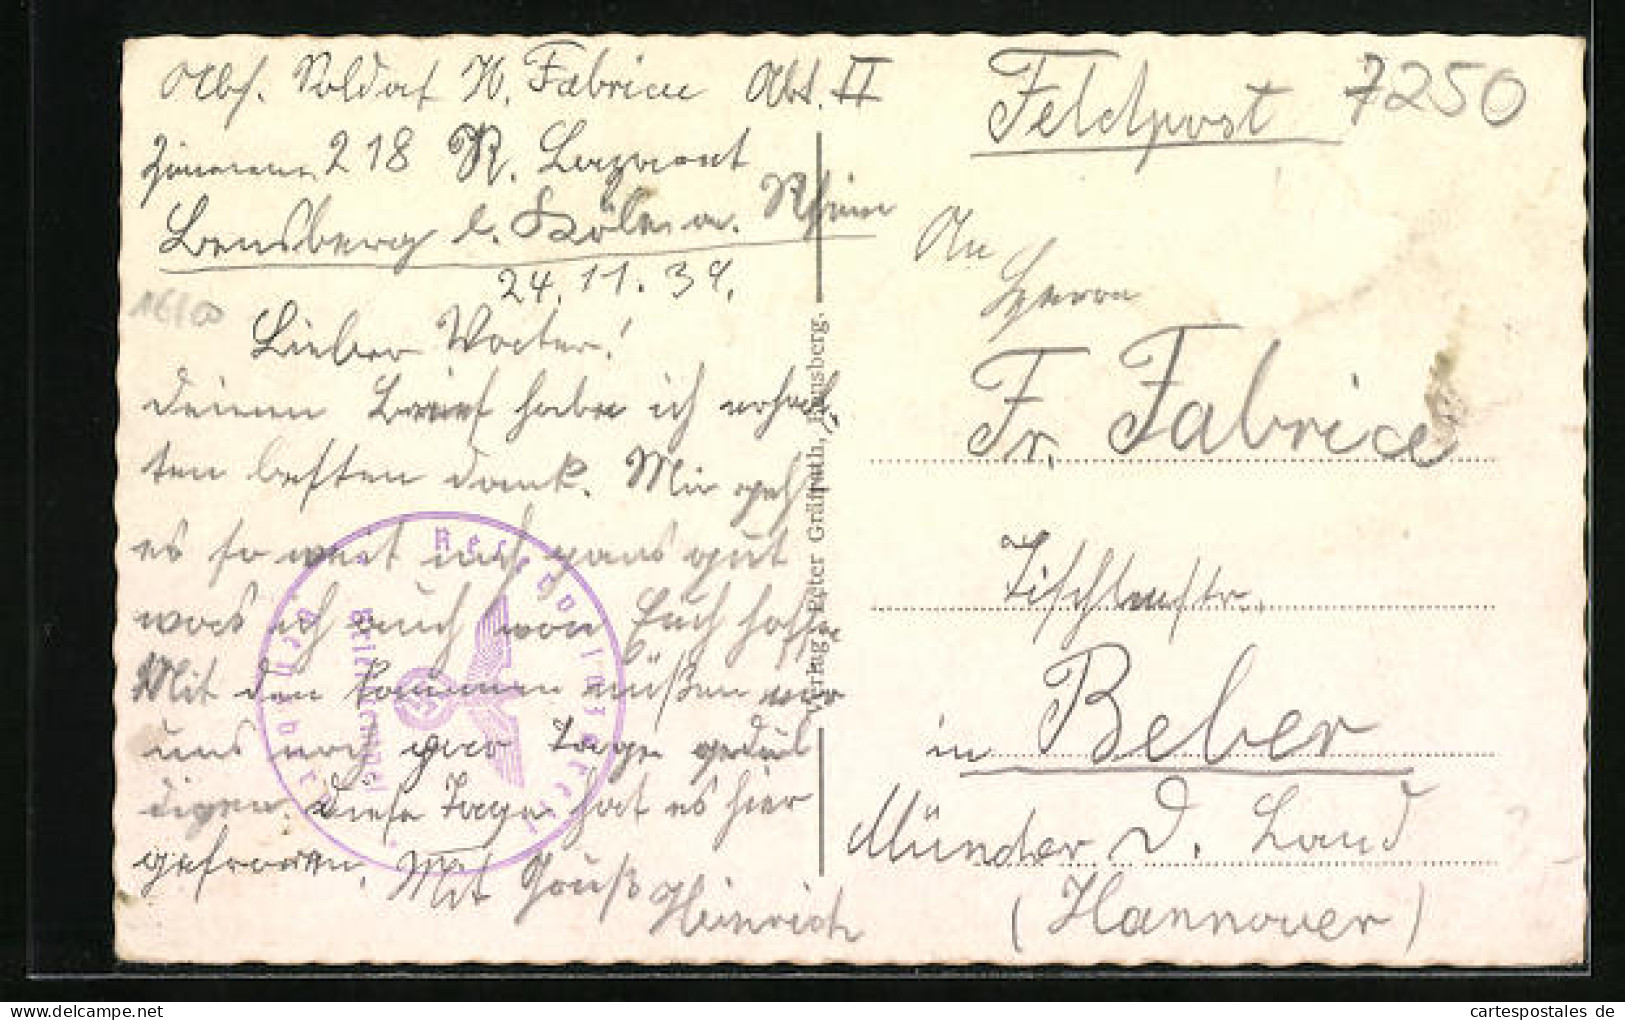 Abs. Soldat H. Fabrice Abt. II
Zimmer 218 R. Lazarett
Bensberg b. Köln a. Rhein
24.11.39.
Lieber Vater!
deinen Brief habe ich erhal-
ten besten dank. Mir geht
es so weit noch ganz gut
was ich auch von Euch hoffe
Mit dem kommen müßen wir
uns noch paar Tage gedul
digen. Diese Tage hat es hier
gefroren. Mit Gruß
Heinrich
16/60
Reservelazarett
Bensberg
Verlag Peter Gräfrath, Bensberg.
Feldpost 7250
An
Herrn
Fr. Fabrice
Tischlermstr.
in Beber
Münder D. Land
(Hannover)
cartespostales de